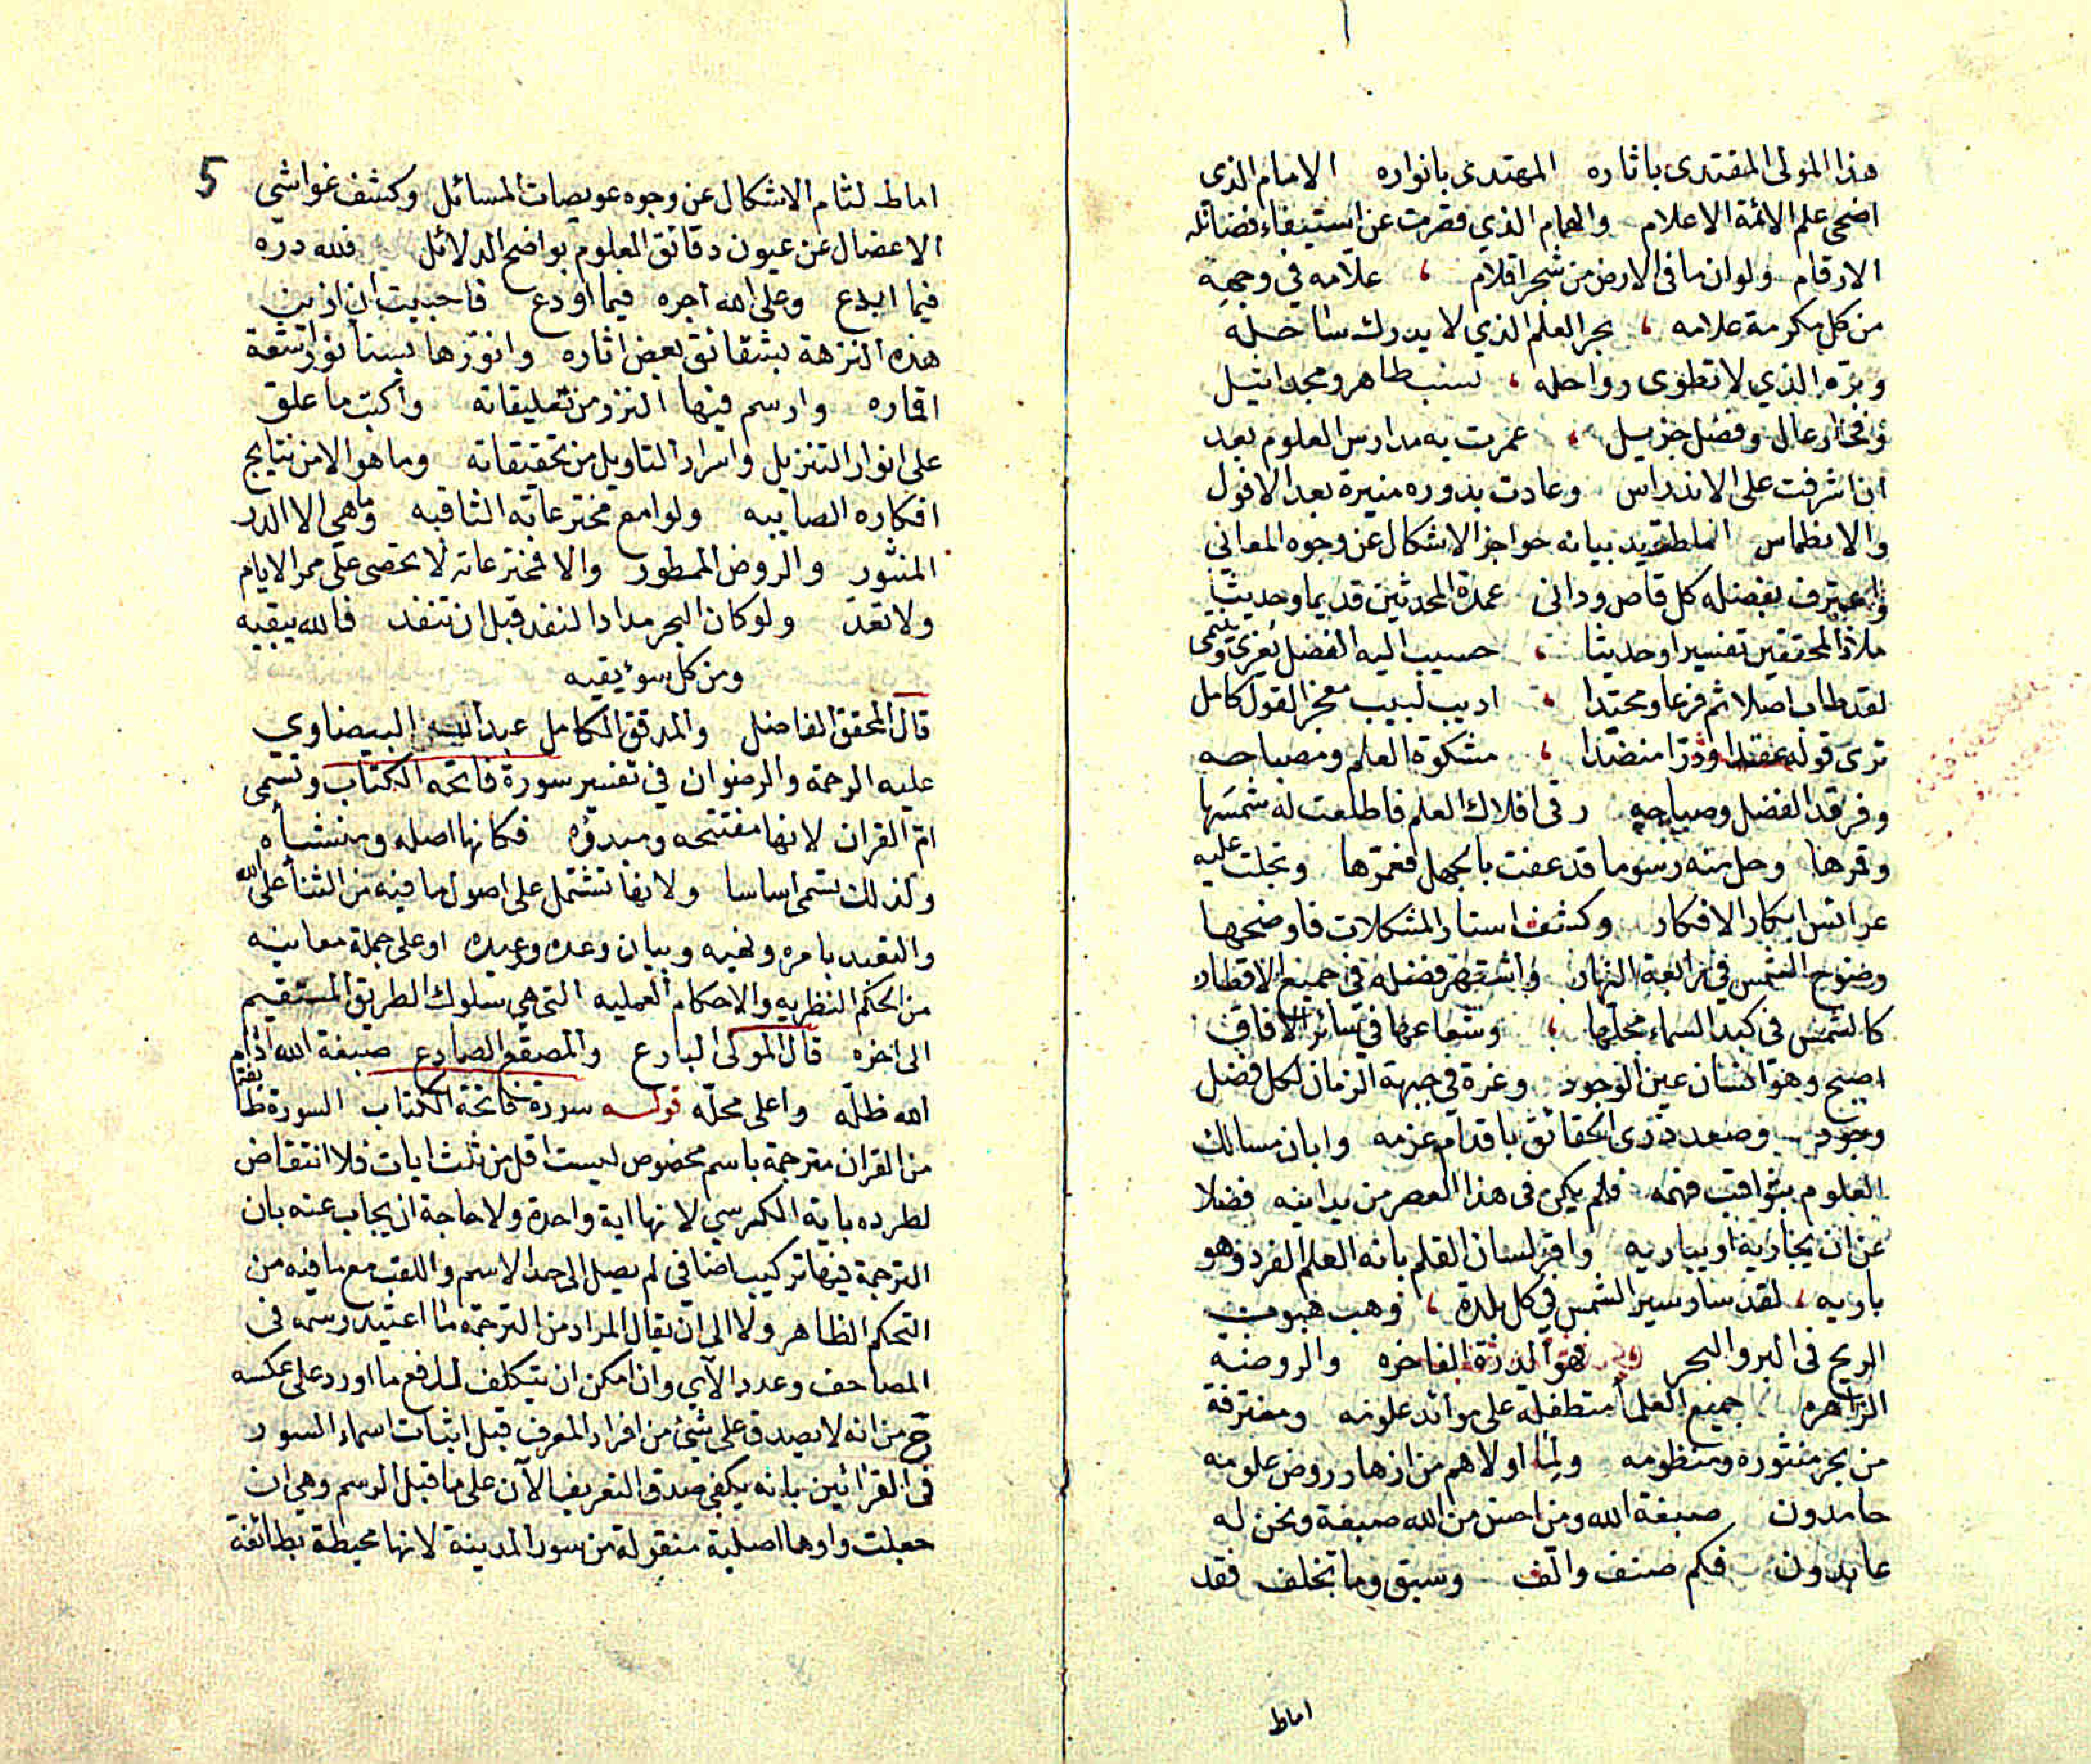 هذا المولى المقتدى باثاره المهتدى بانواره الامام الذى
اضحى علم الائمة الاعلام والهمام الذي قصرت عن استيفاء فضائله
الارقام ولو ان ما فى الارض من شجر اقلام ، علّامه في وجهه
من كل مكرمة علامه ، بحر العلم الذي لا يدرك ساحله
وبره الذي لا تطوى رواحله ، نسب طاهر ومجد اثيل
وفخار عال وفضل جزيل ، عمرت به مدارس العلوم بعد
ان اشرفت على الاندراس وعادت بدوره منيرة بعد الافول
والانطماس اماط بيد بيانه حواجز الاشكال عن وجوه المعاني
واعترف بفضله كل قاص ودانى عمدة المحدثين قديما وحديثا
ملاذ المحققين تفسيرا وحديثا ، حسيب اليه الفضل يعزى وينتمى
لقد طاب اصلا ثم فرعا ومحتدا ، اديب لبيب معجز القول كامل
ترى قوله عقدا ودرّا منضّدا ، مشكوة العلم ومصباحه
وفرقد الفضل وصباحه رقى افلاك العلم فاطلعت له شمسها
وقمرها وحل منه رسوما قد عفت بالجهل فعمرها وتجلت عليه
عرائس ابكار الافكار وكشف استار المشكلات فاوضحها
وضوح الشمس في رابعة النهار واشتهر فضله في جميع الاقطار
كالشمس فى كبد السماء محلها ، وشعاعها في سائر الافاق
اصبح وهو انسان عين الوجود وغرة في جبهة الزمان لكل فضل
وجود وصعد ذرى الحقائق باقدام عزمه وابان مسالك
العلوم بثواقب فهمه فلم يكن فى هذا العصر من يدانيه فضلا
عن ان يجاريه او يباريه واقر لسان القلم بانه العلم الفرد وهو
باريه ، لقد سار سير الشمس في كل بلدة ، وهب هبوب
الريح فى البر والبحر فهو الدرة الفاخره والروضة
الزاهره جميع العلما متطفلة على موائد علومه ومغترفة
من بحر منثوره ومنظومه ولما اولاهم من ازهار روض علومه
حامدون صبغة الله ومن احسن من الله صبغة ونحن له
عابدون فكم صنف والّف وسبق وما تخلف فقد
اماط
5
اماط لثام الاشكال عن وجوه عويصات المسائل وكشف غواشي
الاعضال عن عيون دقائق العلوم بواضح الدلائل فلله دره
فيما ابدع وعلى الله اجره فيما اودع فاحببت ان ازين
هذه النزهة بشقائق بعض اثاره وانورها بسنا نور اشعة
اقماره وارسم فيها النزر من تعليقاته واكتب ما علق
على انوار التنزيل واسرار التاويل من تحقيقاته وما هو الا من نتايج
افكاره الصايبه ولوامع مخترعاته الثاقبه وما هي الا الدر
المنثور والروض الممطور والا فمخترعاته لا تحصى على ممر الايام
ولا تعدّ ولو كان البحر مدادا لنفد قبل ان تنفد فالله يبقيه
ومن كل سؤ يقيه
قال المحقق الفاضل والمدقق الكامل عبد الله البيضاوي
عليه الرحمة والرضوان في تفسير سورة فاتحة الكتاب وتسمى
امّ القران لانها مفتتحه ومبدؤه فكانها اصله ومنشأه
ولذلك تسمى اساسا ولانها تشتمل على اصول ما فيه من الثنا على الله
والتعبد بامره ونهيه وبيان وعده ووعيده او على جملة معانيه
من الحكم النظريه والاحكام العمليه التى هي سلوك الطريق المستقيم
الى اخره قال المولى البارع والمصقع الصادع صبغة الله ادام
الله ظلّه واعلى محلّه قوله سورة فاتحة الكتاب السورة طائفة
من القران مترجمة باسم مخصوص ليست اقل من ثلث ايات فلا انتقاض
لطرده باية الكرسي لانها اية واحدة ولا حاجة ان يجاب عنه بان
الترجمة فيها تركيب اضافى لم يصل الى حد الاسم واللقب مع ما فيه من
التحكم الظاهر ولا الى ان يقال المراد من الترجمة ما اعتيد رسمه فى
المصاحف وعدد الآي وان امكن ان يتكلف لدفع ما اورد على عكسه
ح من انه لا يصدق على شئ من افراد المعرف قبل اثبات اسماء السور
فى القرائين بانه يكفي صدق التعريف الآن على ما قبل الرسم وهي ان
جعلت واوها اصلية منقولة من سور المدينة لانها محيطة بطائفة